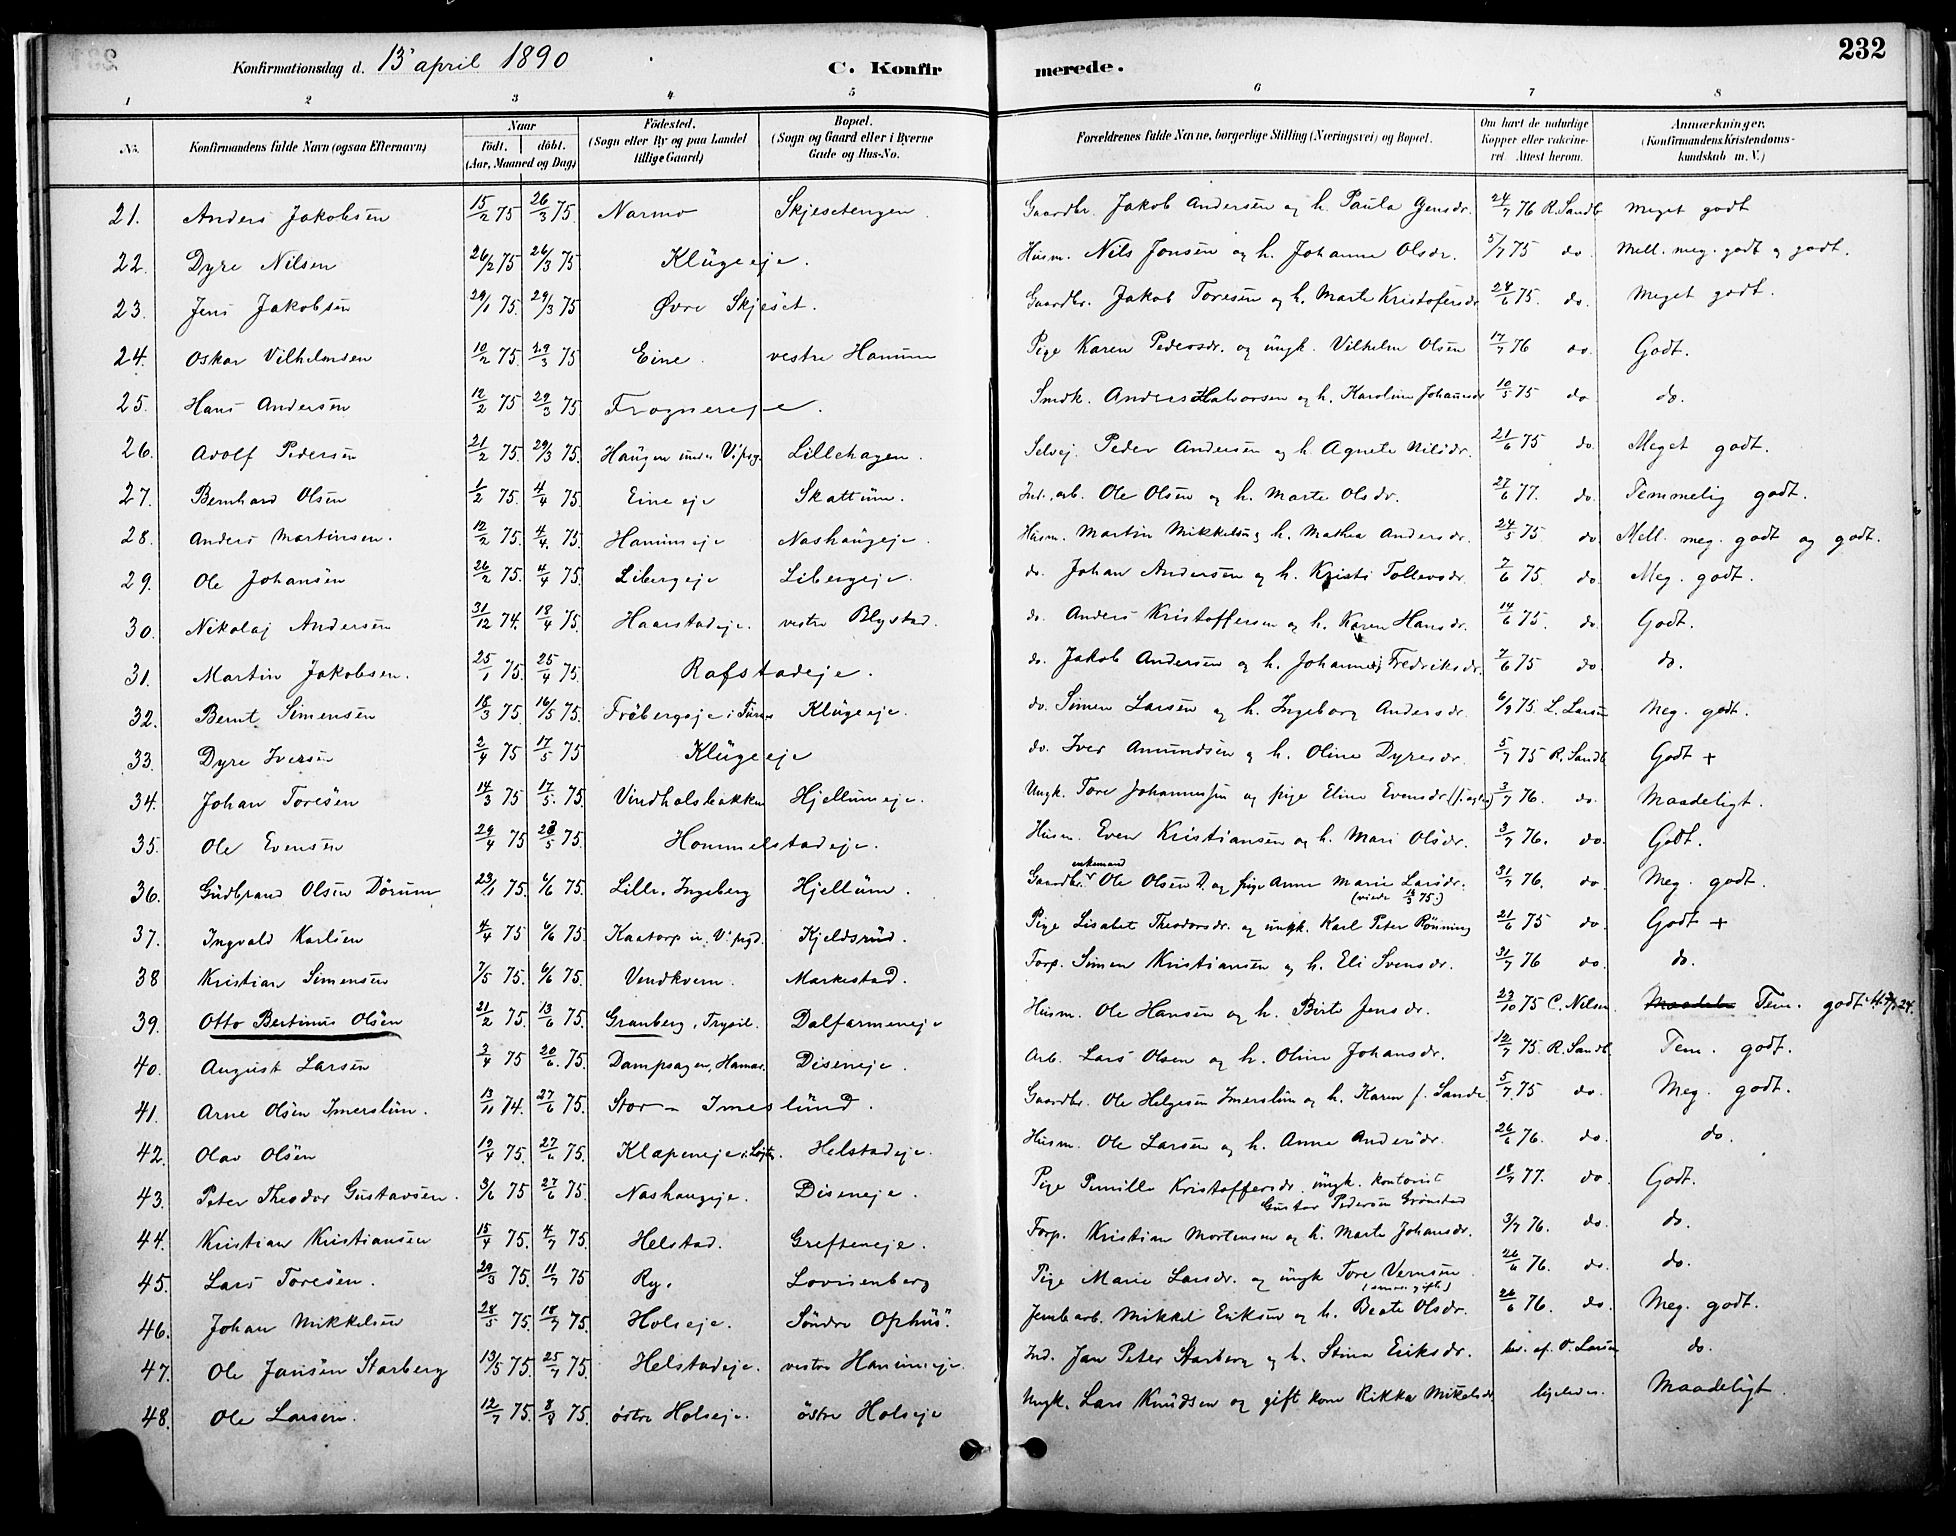 Konfirmationsdag d. 13' april 1890 C. Konfirmerede. 232
1 2 3 4 5 6 7 8
No. Konfirmandens fulde Navn (ogsaa Efternavn) Naar födt. döbt. (Aar, Maaned og Dag) Födested. (Sogn eller By og paa Landet tillige Gaard) Bopæl. (Sogn og Gaard eller i Byerne Gade og Hus-No. Forældrenes fulde Navne, borgerlige Stilling (Næringsvei) og Bopæl. Om havt de naturlige Kopper eller vakcineret. Attest herom. Anmærkninger. (Konfirmandens Kristendomskundskab m. V.)
21. Anders Jakobsen 15/2 75 26/3 75. Narmo Skjesetengen. Gaardbr. Jakob Andersen og h. Paula Jensdr. 24/7 76 R. Sandb. Meget godt
22. Dyre Nilsen 26/2 75 26/3 75 Klügeeje. Husm. Nils Jonsen og h. Johanne Olsdr. 5/7 75 do. Mell. meg. godt og godt.
23. Jens Jakobsen 29/1 75. 29/3 75 Øvre Skjeset. Gaardbr. Jakob Toresen og h. Marte Kristofersdr. 28/6 75. do. Meget godt.
24. Oskar Vilhelmsen 10/2 75. 29/3 75 Eine. vestre Hanum Pige Karen Pedersdr. og ungk. Vilhelm Olsen 17/7 76 do. Godt.
25. Hans Andersen 12/2 75 29/3 75 Frognereje. Smdk. Anders Halvorsen og h. Karoline Johannesdr. 10/5 75 do do.
26. Adolf Pedersen 21/2 75. 29/3 75. Haugen under V. psg. Lillehagen. Selvej. Peder Andersen og h. Agnete Nilsdr. 21/6 75 do. Meget godt.
27. Bernhard Olsen 1/2 75. 4/4 75 Eine eje Skattum. Ind. arb. Ole Olsen og h. Marte Olsdr. 27/6 77. do. Temmelig godt.
28. Anders Martinsen. 12/2 75. 4/4. 75. Hanumeje Nashaugeje. Husm. Martin Mikkelsen og h. Mathea Andersdr. 24/5 75. do Mell. meg. godt og godt.
29. Ole Johansen 26/2 75. 4/4 75. Libergeje Libergeje do. Johan Andersen og h. Kristi Tollevsdr. 7/6 75. do. Meg. godt.
30. Nikolaj Andersen 31/12 74. 18/4 75. Haarstadeje. vestre Blystad. do. Anders Kristoffersen og h. Karen Hansdr. 14/6 75. do. Godt.
31. Martin Jakobsen. 25/1 75. 25/4 75. Rafstadeje. do. Jakob Andersen og h. Johanne Fredriksdr. 7/6 75 do do.
32. Bernt Simensen 18/3 75. 16/5 75. Fröbergseje i Furnes Klügeeje. do. Simen Larsen og h. Ingeborg Andersdr. 6/9 75. L. Larsen Meg. godt.
33. Dyre Iversen 2/4 75 17/5 75 Klügeeje do. Iver Amundsen og h. Oline Dyresdr. 5/7 75 R. Sandb. Godt +
34. Johan Toresen 14/3 75 17/5. 75. Vindholsbakken Hjellumeje. Ungk. Tore Johannessen og pige Eline Evensdr. 3/7 76. do. Maadeligt.
35. Ole Evensen 29/4 75 23/5 75. Hommelstadeje. Husm. Even Kristiansen og h. Mari Olsdr. 3/7 76. do. Godt.
36. Gudbrand Olsen Dörum 23/1 75. 6/6 75. Lille. Ingeberg Hjellum. Gaardbr. enkemand Ole Olsen D. og pige Anne Marie Larsdr. (viede 18/3 75.) 31/7 76. do Meg. godt.
37. Ingvald Karlsen 4/4 75 6/6 75. Kaatorp u. V. psgd. Kjeldsrud. Pige Lisabet Theodorsdr. og ungk. Karl Peter Rønning 21/6 75 do Godt +
38 Kristian Simensen 7/5 75. 6/6 75. Vendkvern. Markestad. Torp. Simen Kristiansen og h. Eli Svensdr. 31/7 76 do. do.
39. Otto Bertinus Olsen 21/2 75. 13/6 75. Granberg, Trysil. Dalfarmeneje Husm. Ole Hansen og h. Birte Jensdr. 23/10 75 C. Nilsen. Tem. godt.
40. August Larsen 3/4 75 20/6. 75. Dampsagen, Hamar. Diseneje. Arb. Lars Olsen og h. Oline Johansdr. 12/7 75. R. Sandb. Tem. godt.
41. Arne Olsen Imerslun. 13/11 74. 27/6 75. Stor-Imeslund. Gaardbr. Ole Helgesen Imerslun og h. Karen f. Sande 5/7. 75 do. Meg. godt.
42. Olav Olsen 19/4 75. 27/6 75. Klapeneje i Løjt. Helstadeje. Husm. Ole Larsen og h. Anne Andersdr. 26/6 76. do. do.
43. Peter Theodor Gustavsen. 3/6 75 27/6 75. Nashaugeje. Diseneje. Pige Pernille Kristoffersdr. ungk. kontorist Gustav Pedersen Grönstad 18/7 77. do Godt.
44. Kristian Kristiansen 15/4 75. 4/7 75. Helstad. Grefteneje. Torp. Kristian Mortensen og h. Marte Johansdr. 3/7 76. do. do.
45. Lars Toresen. 29/3 75. 11/7 75 Ry. Lovisenberg Pige Marie Larsdr. og ungk Tore Vernsen 26/6 76. do. do.
46. Johan Mikkelsen 28/5 75. 18/7 75. Holseje. Söndre Ophus. Jernb arb. Mikkel Eriksen og h. Beate Olsdr. 26/6 76. do. Meg. godt.
47. Ole Jansen Starberg 13/5 75. 25/7 75. Helstadeje. vestre Hanumeje. Ind. Jan Peter Starberg og h. Stina Eriksdr. bev. af O. Larsen do.
48. Ole Larsen. 12/7 75. 8/8 75. östre Holseje. östre Holseje Ungk. Lars Knudsen og gift kone Rikka Mikelsdr. ligeledes. Maadeligt.